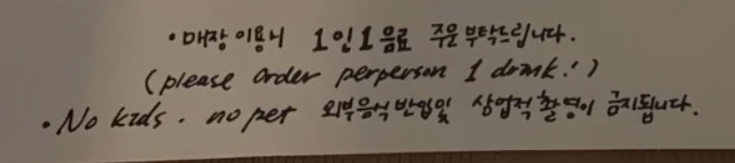 • 매장 이용시 1인1음료 주문 부탁드립니다.
(please order perperson 1 drink!)
• No kids. no pet 외부음식 반입및 상업적 촬영이 금지됩니다.